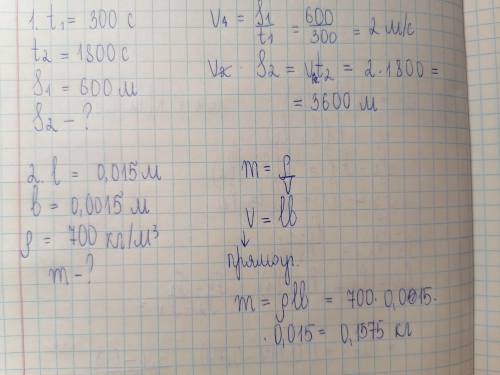 1. t₁ = 300 с
t₂ = 1800 с
S₁ = 600 м
S₂ - ?
V₁ = S₁/t₁ = 600/300 = 2 м/с
S₂ = Vt₂ = 2·1800 =
= 3600 м
2. l = 0,015 м
b = 0,0015 м
ρ = 700 кг/м³
m - ?
m = ρ/V
V = lb
↓
прямоуг.
m = ρlb = 700·0,0015·
·0,015 = 0,1575 кг